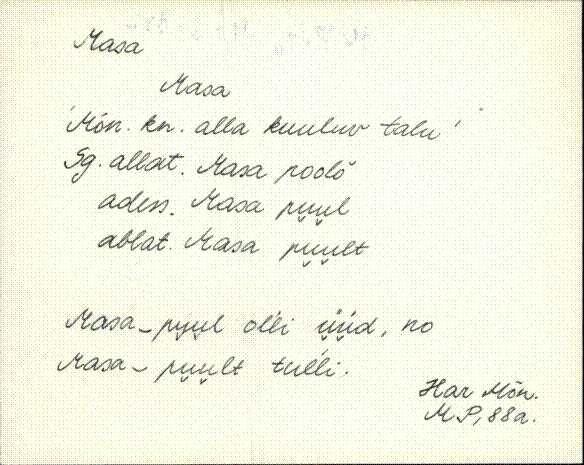 Masa
Masa
'Mõn. kn. alla kuuluv talu'
Sg. allat. Masa poolõ
adess. Masa pu̬u̬l
ablat. Masa pu̬u̬lt
Masa-pu̬u̬l olĺi ü̬ü̬d, no
Masa-pu̬u̬lt tulĺi.
Har Mõn.
M.P, 88a.